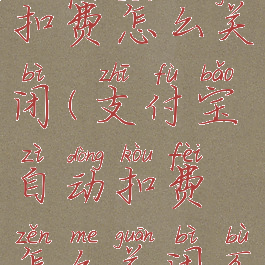 扣费怎么关
bì zhī fù bǎo
闭(支付宝
zì dòng kòu fèi
自动扣费
zěn me guān bì bù
怎么关闭不